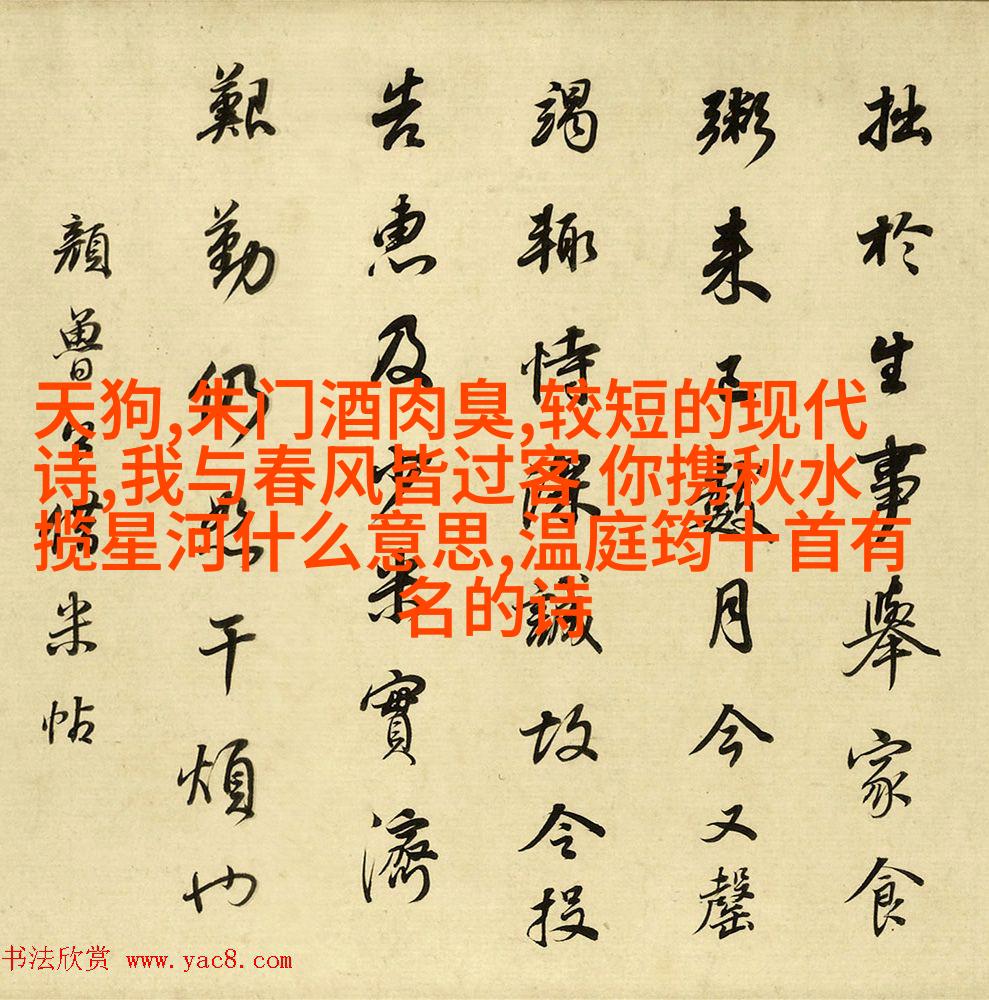 拙於生事舉家食
粥来已數月今又罄
竭輙恃深誠故令投
告惠及少米實濟
艱勤仍恕干煩也
顏魯公米帖
天狗,朱门酒肉臭,较短的现代
诗,我与春风皆过客 你携秋水
揽星河什么意思,温庭筠十首有
名的诗
书法欣赏 www.yac8.com